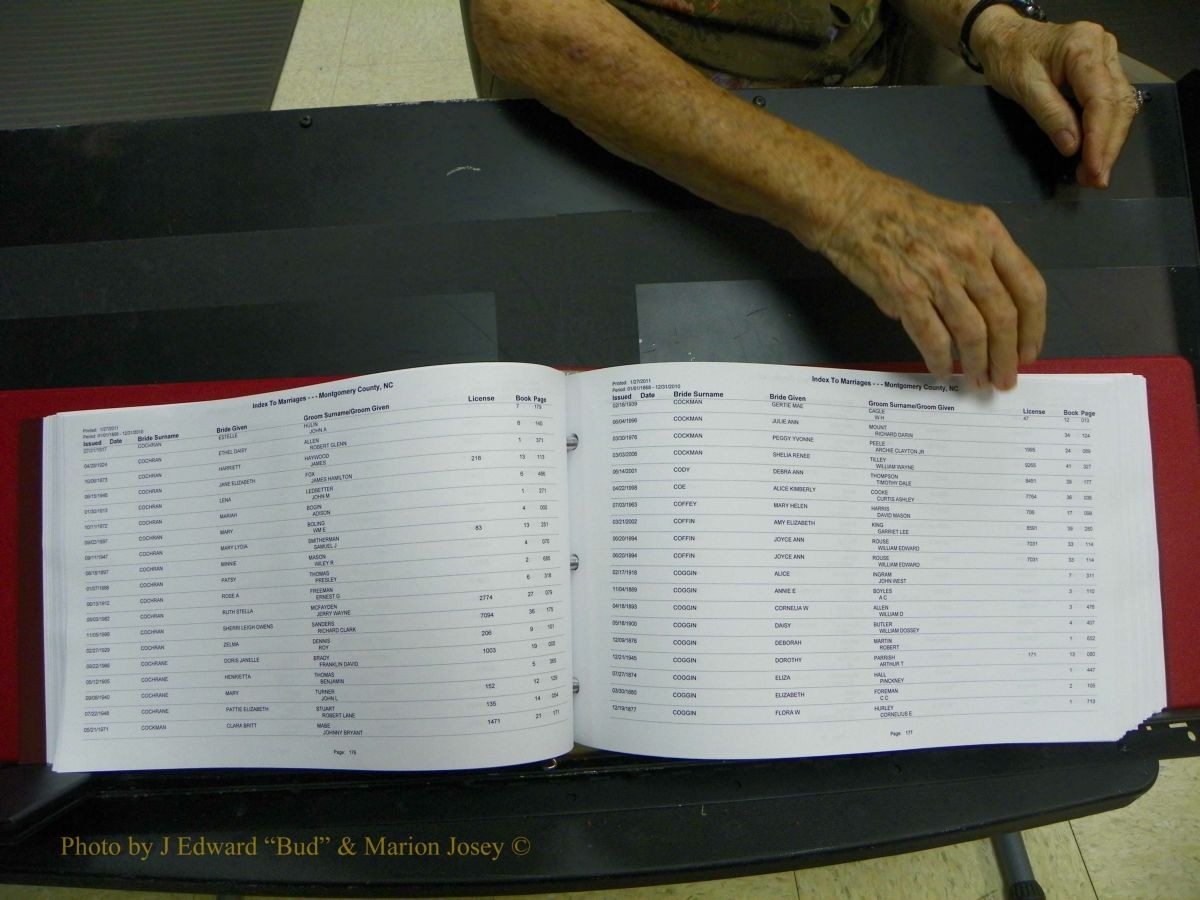 Printed 1/27/2011
Period 01/01/1868 - 12/31/2010
Index To Marriages - - - Montgomery County, NC
Issued Date Bride Surname Bride Given Groom Surname/Groom Given License Book Page
COCHRAN ESTELLE HULIN 7 175
JOHN A
04/29/1924 COCHRAN ETHEL DAISY ALLEN 8 140
ROBERT GLENN
10/09/1873 COCHRAN HARRIETT HAYWOOD 1 371
JAMES
06/15/1946 COCHRAN JANE ELIZABETH FOX 218 13 113
JAMES HAMILTON
01/30/1913 COCHRAN LENA LEDBETTER 6 486
JOHN M
10/11/1872 COCHRAN MARIAH BOGIN 1 271
ADISON
09/02/1897 COCHRAN MARY BOLING 4 000
WM E
09/11/1947 COCHRAN MARY LYDIA SMITHERMAN 83 13 231
SAMUEL J
08/18/1897 COCHRAN MINNIE MASON 4 075
WILEY R
01/07/1888 COCHRAN PATSY THOMAS 2 685
PRESLEY
06/13/1912 COCHRAN ROSE A FREEMAN 6 318
ERNEST G
09/03/1982 COCHRAN RUTH STELLA MCFAYDEN 2774 27 079
JERRY WAYNE
11/05/1999 COCHRAN SHERRI LEIGH OWENS SANDERS 7094 35 175
RICHARD CLARK
02/27/1929 COCHRAN ZELMA DENNIS 206 9 101
ROY
09/22/1966 COCHRANE DORIS JANELLE BRADY 1003 19 005
FRANKLIN DAVID
05/12/1905 COCHRANE HENRIETTA THOMAS 5 365
BENJAMIN
09/08/1940 COCHRANE MARY TURNER 152 12 125
JOHN L
07/22/1948 COCHRANE PATTIE ELIZABETH STUART 135 14 054
ROBERT LANE
05/21/1971 COCKMAN CLARA BRITT MABE 1471 21 171
JOHNNY BRYANT
Page: 176
Printed 1/27/2011
Period 01/01/1868 - 12/31/2010
Index To Marriages - - - Montgomery County, NC
Issued Date Bride Surname Bride Given Groom Surname/Groom Given License Book Page
02/18/1939 COCKMAN GERTIE MAE CAGLE 47 12 013
W H
06/04/1996 COCKMAN JULIE ANN MOUNT 34 124
RICHARD DARIN
03/30/1976 COCKMAN PEGGY YVONNE PEELE 1995 24 089
ARCHIE CLAYTON JR
03/03/2006 COCKMAN SHELIA RENEE TILLEY 9265 41 327
WILLIAM WAYNE
06/14/2001 CODY DEBRA ANN THOMPSON 8401 39 177
TIMOTHY DALE
04/22/1998 COE ALICE KIMBERLY COOKE 7764 36 036
CURTIS ASHLEY
07/03/1963 COFFEY MARY HELEN HARRIS 706 17 099
DAVID MASON
03/21/2002 COFFIN AMY ELIZABETH KING 8591 39 250
GARRIET LEE
06/20/1994 COFFIN JOYCE ANN ROUSE 7031 33 114
WILLIAM EDWARD
06/20/1994 COFFIN JOYCE ANN ROUSE 7031 33 114
WILLIAM EDWARD
02/17/1918 COGGIN ALICE INGRAM 7 311
JOHN WEST
11/04/1889 COGGIN ANNIE E BOYLES 3 110
A C
04/18/1893 COGGIN CORNELIA W ALLEN 3 476
WILLIAM D
05/18/1900 COGGIN DAISY BUTLER 4 407
WILLIAM DOSSEY
12/09/1876 COGGIN DEBORAH MARTIN 1 652
ROBERT
12/21/1945 COGGIN DOROTHY PARRISH 171 13 060
ARTHUR T
07/27/1874 COGGIN ELIZA HALL 1 447
PINCKNEY
03/30/1880 COGGIN ELIZABETH FOREMAN 2 105
C C
12/19/1877 COGGIN FLORA W HURLEY 1 713
CORNELIUS E
Page: 177
Photo by J Edward “Bud” & Marion Josey ©